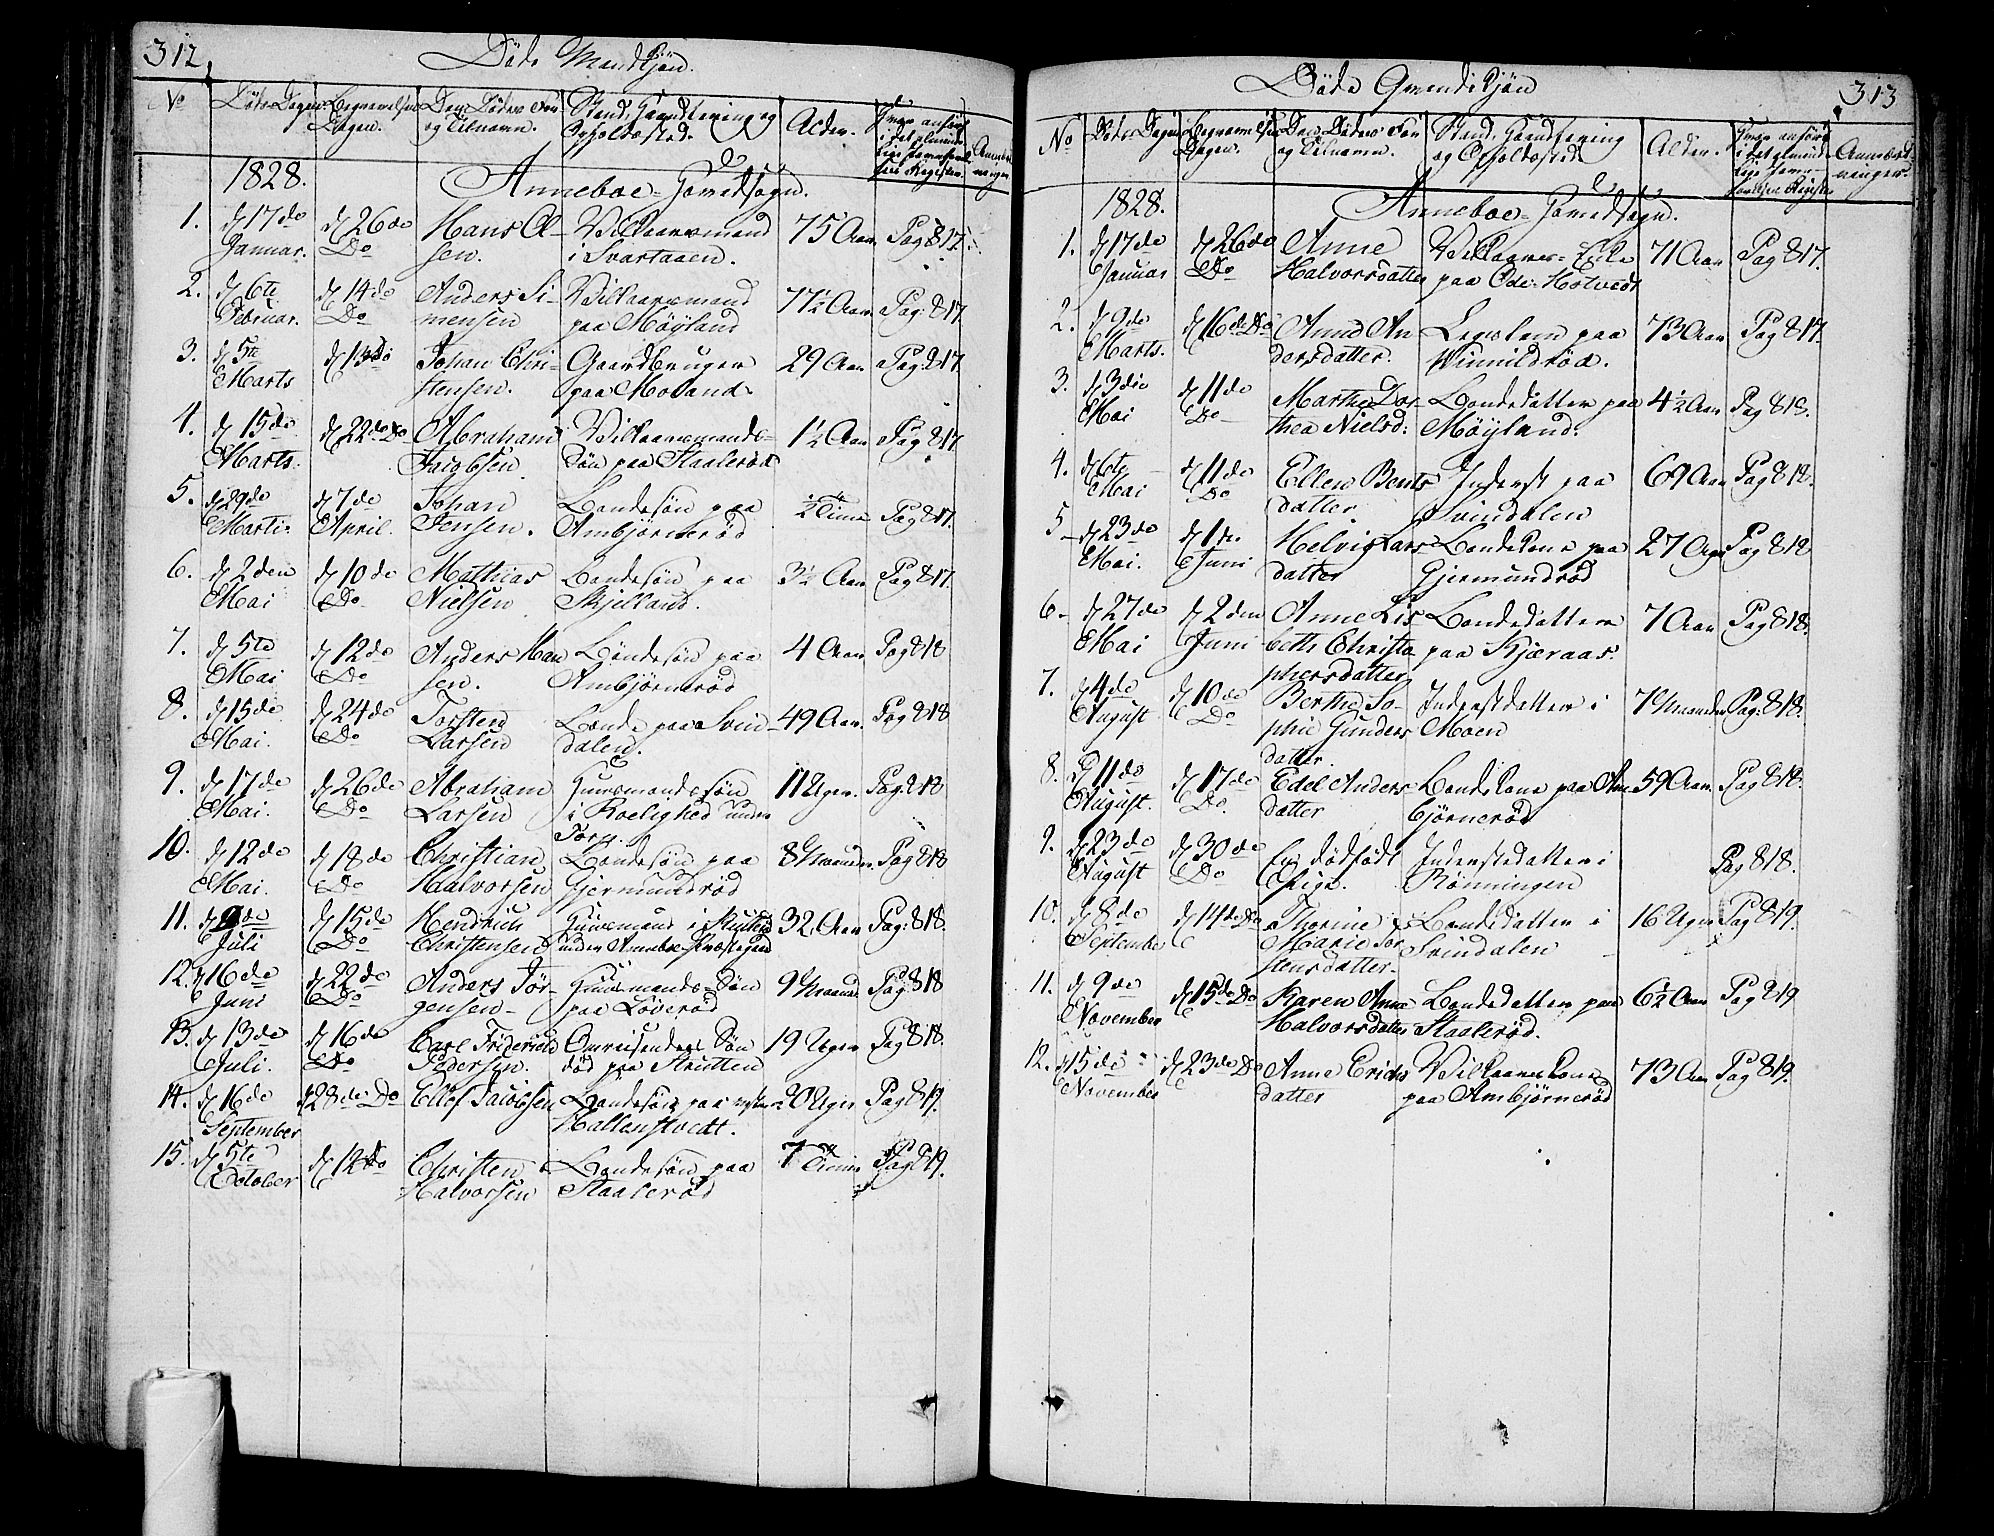 312
Døde Mandkjøn.
No
Døds Dagen.
Begravelses
Dagen.
Den Dødes For
og Tilnavn.
Stand, Haandtering og
Opholdssted.
Alder.
Hvor anført
i det almind
lige Jevnførel
ses Register.
Anmærk
ninger
1828.
Anneboe-Hovedsogn.
1. d 17de
Januar.
d 26de
Do
Hans Ol-
sen.
Vilkaarsmand
i Svartaaen.
75 Aar
Pag 817.
2. d 6te
Februar.
d 14de
Do
Anders Si-
mensen
Vilkaarsmand
paa Møyland
77½ Aar
Pag: 817.
3. d 5te
Marts
d 13de
Johan Chri-
stensen.
Gaardbruger
paa Moland
29 Aar
Pag: 817.
4. d 15de
Marts.
d 22de Do
Abraham
Jacobsen
Vilkaarsmands-
Søn paa Staalerød
1½ Aar
Pag: 817.
5. d 29de
Marti:
d 7de
April.
Johan
Jensen.
Bondesøn paa
Ambjørnerød
½ Time
Pag: 817.
6. d 2den
Mai
d 10de
Do
Mathias
Nielsen
Bondesøn paa
Skjelland.
3½ Aar
Pag: 817.
7. d 5te
Mai
d 12de
Do
Anders Han
sen.
Bondesøn paa
Ambjørnerød
4 Aar
Pag 818
8. d 15de
Mai.
d 24de
Do
Torsten
Larsen
Bonde paa Svin-
dalen.
49 Aar.
Pag 818
9. d 17de
Mai.
d 26de
Do
Abraham
Larsen
Huusmandssøn
i Roelighed under
Torp.
11 Uger.
Pag: 818
10. d 12de
Mai.
d 18de
Do
Christian
Halvorsen
Bondesøn paa
Gjermundrød
8 Maaneder.
Pag: 818
11. d 9de
Juli
d 15de
Do
Hendrich
Christensen
Huusmand i
under Anneboe Præstegaard
32 Aar
Pag: 818.
12. d 16de
Juni
d 22de
Do
Anders Jør-
gensen-
Huusmands-Søn
paa Løverød
9 Maaned.
Pag 818
13. d 13de
Juli.
d 16de
Do
Carl Friderich
Pedersen.
Omreisendes Søn
død paa Skrutten
19 Uger
Pag 818.
14. d 16de
September
d 28de Do
Ellef Jacobsen
Bondesøn paa
Hallenstvedt.
20 Uger
Pag 819.
15. d 5te
October
d 12de
Christen
Halvorsen
Bondesøn paa
Staalerød
7 Timer
Pag 819.
313
Døde Qvindekjøn
No
Døds Dagen
Begravelses
Dagen.
Den Dødes For
og Tilnavn.
Stand, Haandtering
og Opholdssted
Alder.
Hvor anført
i det almind
lige Jevn-
førelses Register
Anmærk
ninger.
1828.
Anneboe-Hovedsogn.
1. d 17de
Januar
d 26de
Do
Anne
Halvorsdatter
Vilkaars-Enke
paa Øde-Hotvedt
71 Aar
Pag 817.
2. d 9de
Marts.
d 16de Do
Anne An
dersdatter.
Legslem paa
Wimildrød.
73 Aar
Pag 817.
3. d 3die
Mai
d 11de
Do
Marthe Dor-
thea Nielsd:
Bondedatter paa
Møyland.
4½ Aar
Pag 818.
4. d 6te
Mai
d 11de
Do
Ellen Bents
datter
Inderst paa
Svindalen
69 Aar
Pag 818.
5- d 23de
Mai.
d 1ste
Juni
Helvig Lars
datter
Bondekone paa
Gjermundrød
27 Aar
Pag 818
6- d 27de
Mai
d 2den
Juni
Anne Lis
beth Christo
phersdatter
Bondedatter
paa Kjæraas.
7 Aar
Pag 818.
7. d 4de
August
d 10de
Do
Berthe So-
phie Gunders
datter.
Inderstdatter i
Moen
7 Maaneder
Pag: 818.
8. d 11de
August.
d 17de
Do
Edel Anders
datter
Bondekone paa Am
bjørnerød
59 Aar.
Pag 818.
9. d 23de
August
d 30de
Do
En dødfødt
Pige.
Inderstdatter i
Rønningen
Pag 818.
10. d 8de
September
d 14de Do
Thorine
Marie Tor
stensdatter-
Bondedatter i
Svindalen
16 Uger
Pag 819.
11. d 9de
November
d 15de Do
Karen Anne
Halvorsdatter
Bondedatter paa
Staalerød.
6½ Aar
Pag 819
12. d 15de
November
d 23de Do
Anne Erichs
datter
Vilkaarskone
paa Ambjørnerød
73 Aar
Pag 819.